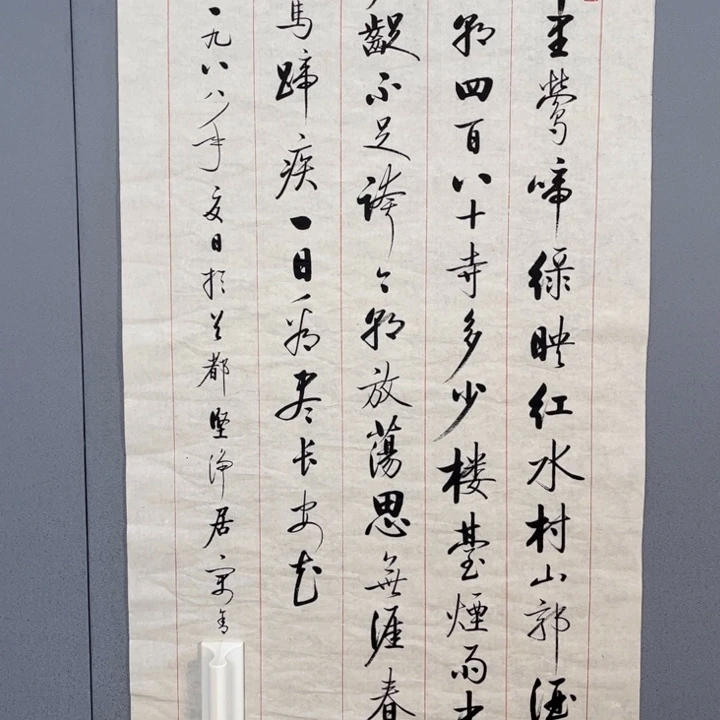 里莺啼绿映红水村山郭酒
朝四百八十寺多少楼臺煙雨中
龊不足誇今朝放蕩思無涯春
馬蹄疾一日看尽长安花
一九八八年夏日於首都坚净居